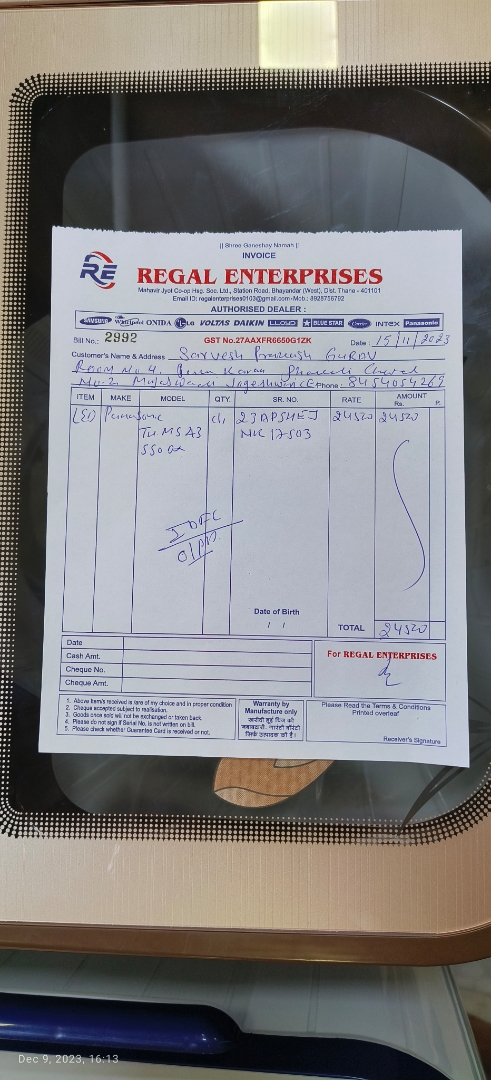 || Shree Ganeshay Namah ||
INVOICE
RE
REGAL ENTERPRISES
Mahavir Jyot Co-op Hsg. Soc. Ltd., Station Road, Bhayandar (West), Dist. Thane - 401101
Email ID: regalenterprises0103@gmail.com - Mob.: 8928756792
AUTHORISED DEALER :
SAMSUNG Whirlpool ONIDA LG VOLTAS DAIKIN LLOYD BLUE STAR Carrier INTEX Panasonic
Bill No.: 2992 GST No.27AAXFR6650G1ZK Date : 15/11/2023
Customer's Name & Address Sarvesh Prakash GURAV
Room No 4. Chawl
No. 2 Phone : 8454054269
ITEM MAKE MODEL QTY. SR. NO. RATE AMOUNT
Rs. P.
LED Panasonic 24520 24520
Date of Birth
/ /
TOTAL 24520
Date
Cash Amt.
Cheque No.
Cheque Amt.
For REGAL ENTERPRISES
1. Above item's received is rare of my choice and in proper condition
2. Cheque accepted subject to realisation.
3. Goods once sold will not be exchanged or taken back.
4. Please do not sign if Serial No. is not written on bill.
5. Please check whether Guarantee Card is received or not.
Warranty by
Manufacture only
Please Read the Terms & Conditions
Printed overleaf
Receiver's Signature
Dec 9, 2023, 16:13